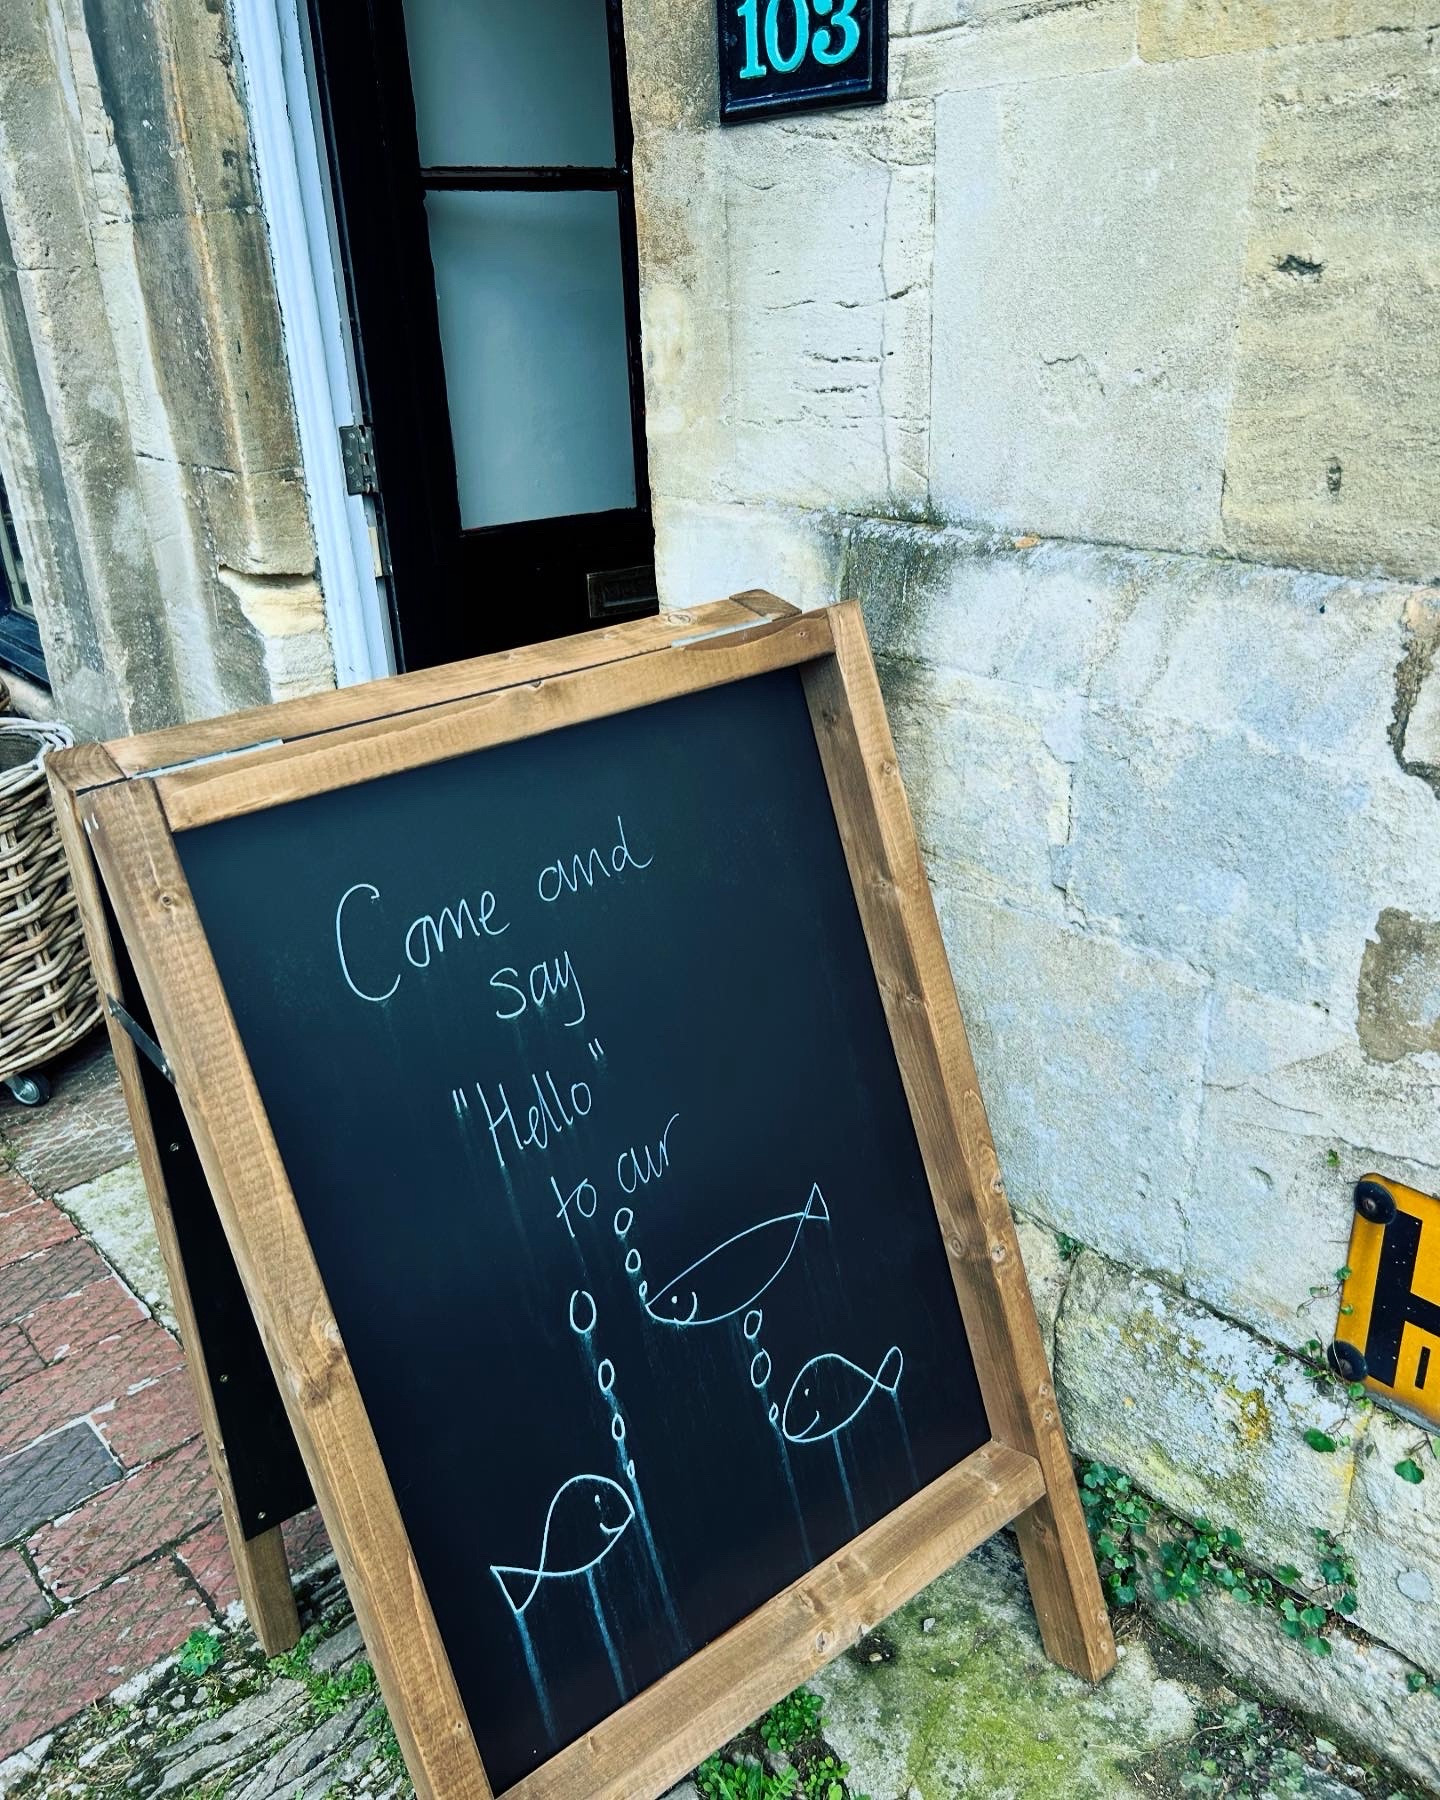 103
Come and
say
"Hello"
to our
H